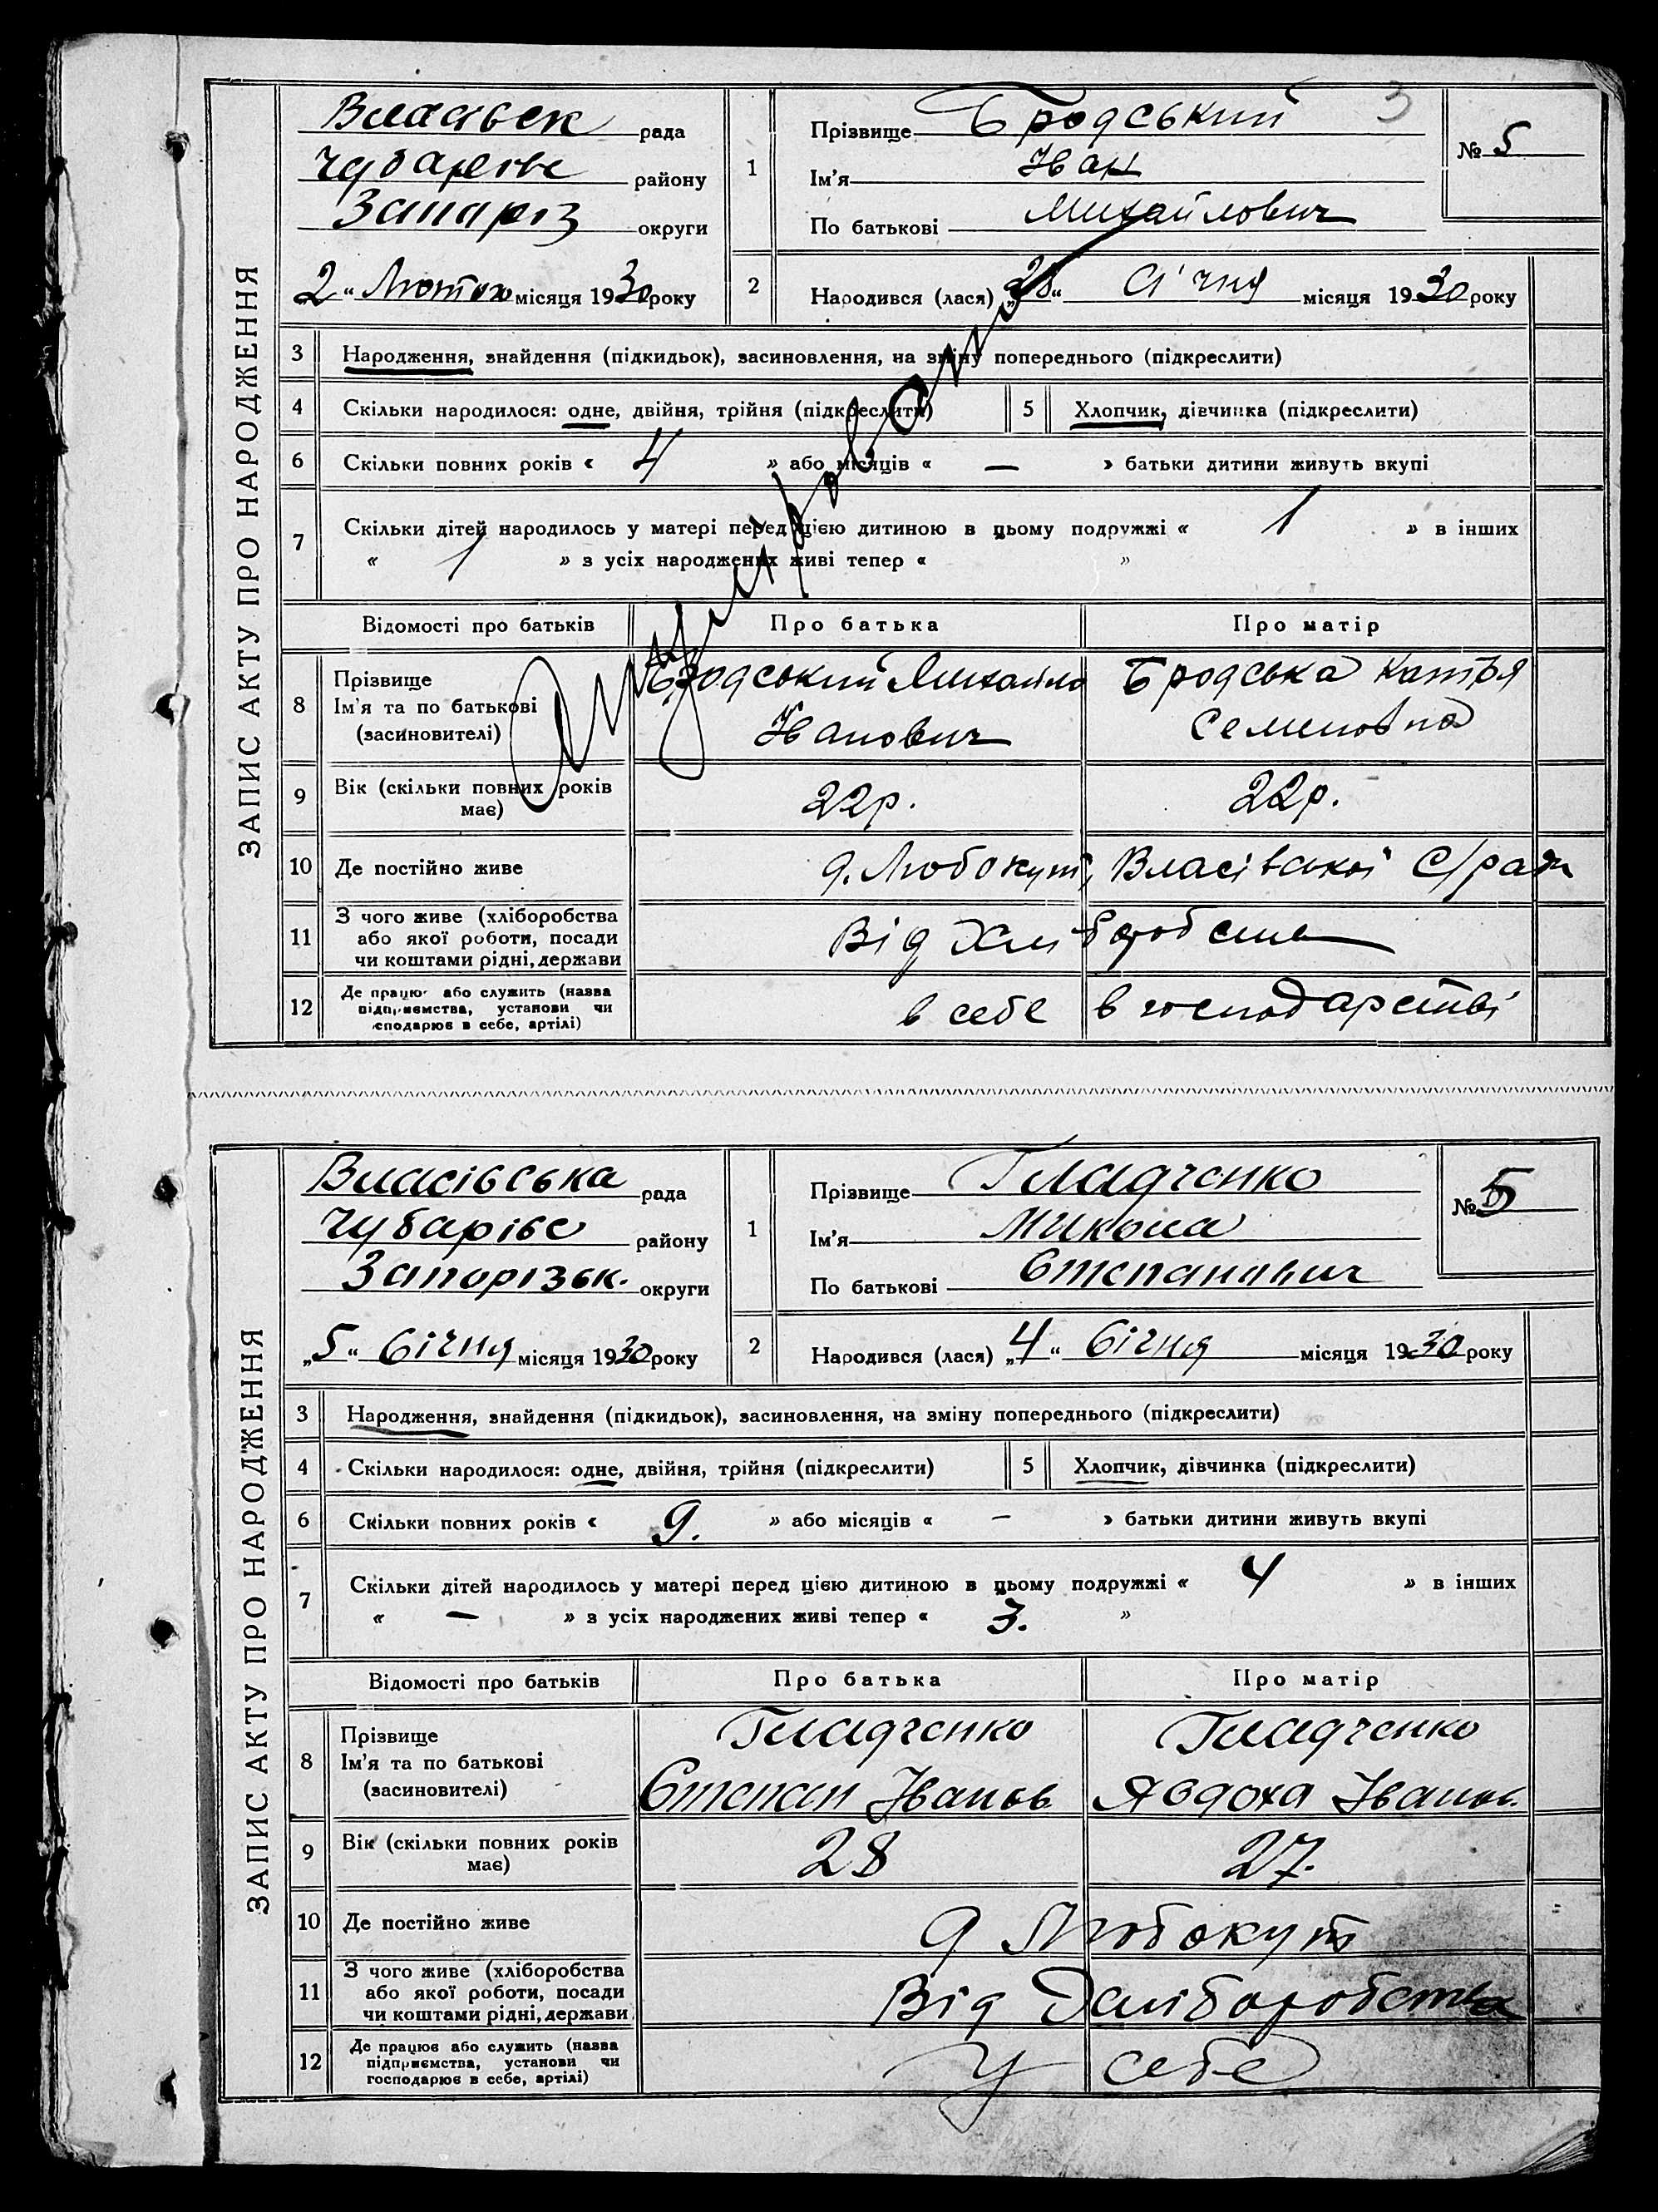 3
ЗАПИС АКТУ ПРО НАРОДЖЕННЯ
Власівск рада
Чубарівс району
Запоріз округи
2 „ Лютого місяця 1930 року
1
Прізвище Бродський
Ім'я Іван
По батькові Михайлович
№ 5
2
Народився (лася) „28“ Січня місяця 1930 року
3 Народження, знайдення (підкидьок), засиновлення, на зміну попереднього (підкреслити)
4 Скільки народилося: одне, двійня, трійня (підкреслити) 5 Хлопчик, дівчинка (підкреслити)
6 Скільки повних років « 4 » або місяців « — » батьки дитини живуть вкупі
7 Скільки дітей народилось у матері перед цією дитиною в цьому подружжі « 1 » в інших
« 1 » з усіх народжених живі тепер « »
Анульовано
Відомості про батьків Про батька Про матір
8 Прізвище
Ім'я та по батькові
(засиновителі)
Бродський Михайло
Іванович
Бродська Катря
Семеновна
9 Вік (скільки повних років
має)
22р. 22р.
10 Де постійно живе д. Любокут, Власівської С/ради
11 З чого живе (хліборобства
або якої роботи, посади
чи коштами рідні, держави
Від Хліборобства
12 Де працює або служить (назва
підприємства, установи чи
господарює в себе, артілі)
в себе в господарстві
ЗАПИС АКТУ ПРО НАРОДЖЕННЯ
Власівська рада
Чубарівс району
Запорізьк. округи
„5“ Січня місяця 1930 року
1
Прізвище Гладченко
Ім'я Микола
По батькові Степанович
№ 5
2
Народився (лася) „4“ Січня місяця 1930 року
3 Народження, знайдення (підкидьок), засиновлення, на зміну попереднього (підкреслити)
4 Скільки народилося: одне, двійня, трійня (підкреслити) 5 Хлопчик, дівчинка (підкреслити)
6 Скільки повних років « 9. » або місяців « – » батьки дитини живуть вкупі
7 Скільки дітей народилось у матері перед цією дитиною в цьому подружжі « 4 » в інших
« – » з усіх народжених живі тепер « 3. »
Відомості про батьків Про батька Про матір
8 Прізвище
Ім'я та по батькові
(засиновителі)
Гладченко
Степан Іванов
Гладченко
Явдоха Іванов.
9 Вік (скільки повних років
має)
28 27.
10 Де постійно живе д Любокут
11 З чого живе (хліборобства
або якої роботи, посади
чи коштами рідні, держави
Від Хліборобства
12 Де працює або служить (назва
підприємства, установи чи
господарює в себе, артілі)
У себе